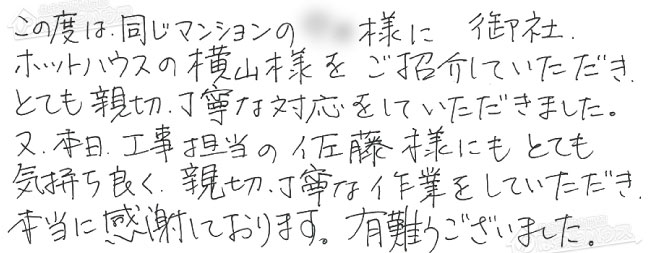 この度は、同じマンションの 様に 御社、
ホットハウスの横山様をご紹介していただき、
とても親切、丁寧な対応をしていただきました。
又、本日、工事担当の佐藤様にもとても
気持ち良く、親切、丁寧な作業をしていただき、
本当に感謝しております。有難うございました。